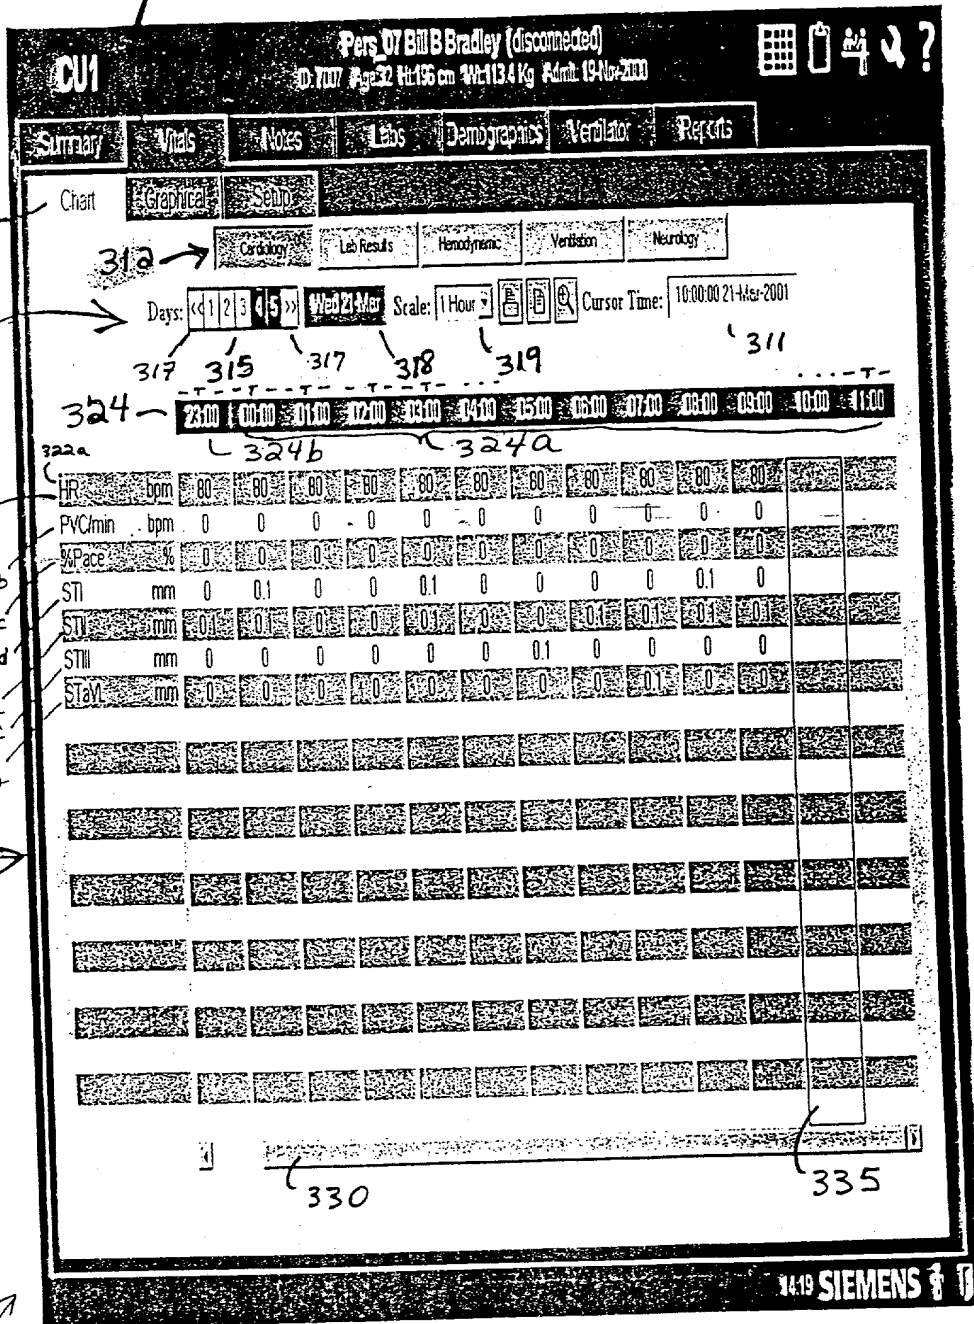 CU1
Pers_07 Bill B Bradley (disconnected)
ID: 7007 Age:32 Ht:196 cm Wt:113.4 Kg Admit: 19-Nov-2000
?
Summary Vitals Notes Labs Demographics Ventilator Reports
Chart Graphical Setup
312 Cardiology Lab Results Hemodynamic Ventilation Neurology
Days: << 1 2 3 4 5 >> Wed 21-Mar Scale: 1 Hour Cursor Time: 10:00:00 21-Mar-2001
317 315 317 318 319 311
324 23:00 00:00 01:00 02:00 03:00 04:00 05:00 06:00 07:00 08:00 09:00 10:00 11:00
324b 324a
322a
HR bpm 80 80 80 80 80 80 80 80 80 80 80
PVC/min bpm 0 0 0 0 0 0 0 0 0 0 0
%Pace % 0 0 0 0 0 0 0 0 0 0 0
STI mm 0 0.1 0 0 0.1 0 0 0 0 0.1 0
STII mm 0.1 0.1 0 0 0.1 0 0 0.1 0.1 0.1 0.1
STIII mm 0 0 0 0 0 0 0.1 0 0 0 0
STaVL mm 0 0 0 0 0 0 0 0 0.1 0 0
330 335
14:19 SIEMENS